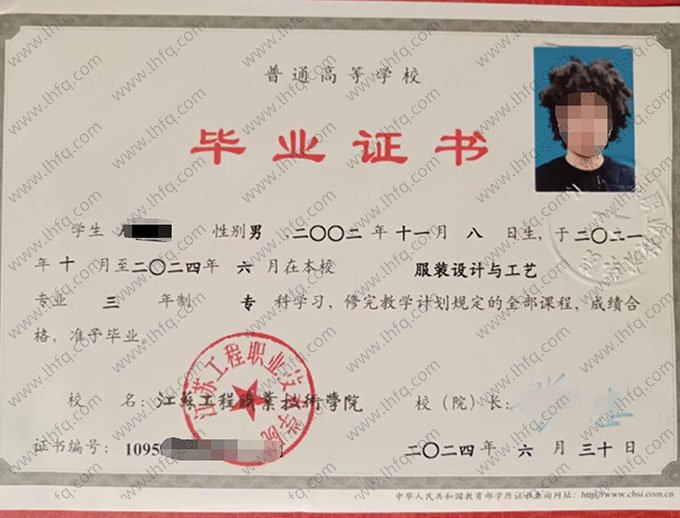 普通高等学校
毕业证书
学生 性别 男 ，二〇〇二 年 十一月 八 日生，于二〇二一
年 十 月至二〇二四年 六 月在本校 服装设计与工艺
专业 三 年制 专 科学习，修完教学计划规定的全部课程，成绩合
格，准予毕业。
校 名：江苏工程職業技術學院 校（院）长：
江苏工程职业技术学院
证书编号：1095 二〇二四年 六 月 三十日
中华人民共和国教育部学历证书查询网址：http://www.chsi.com.cn
www.lhfq.com